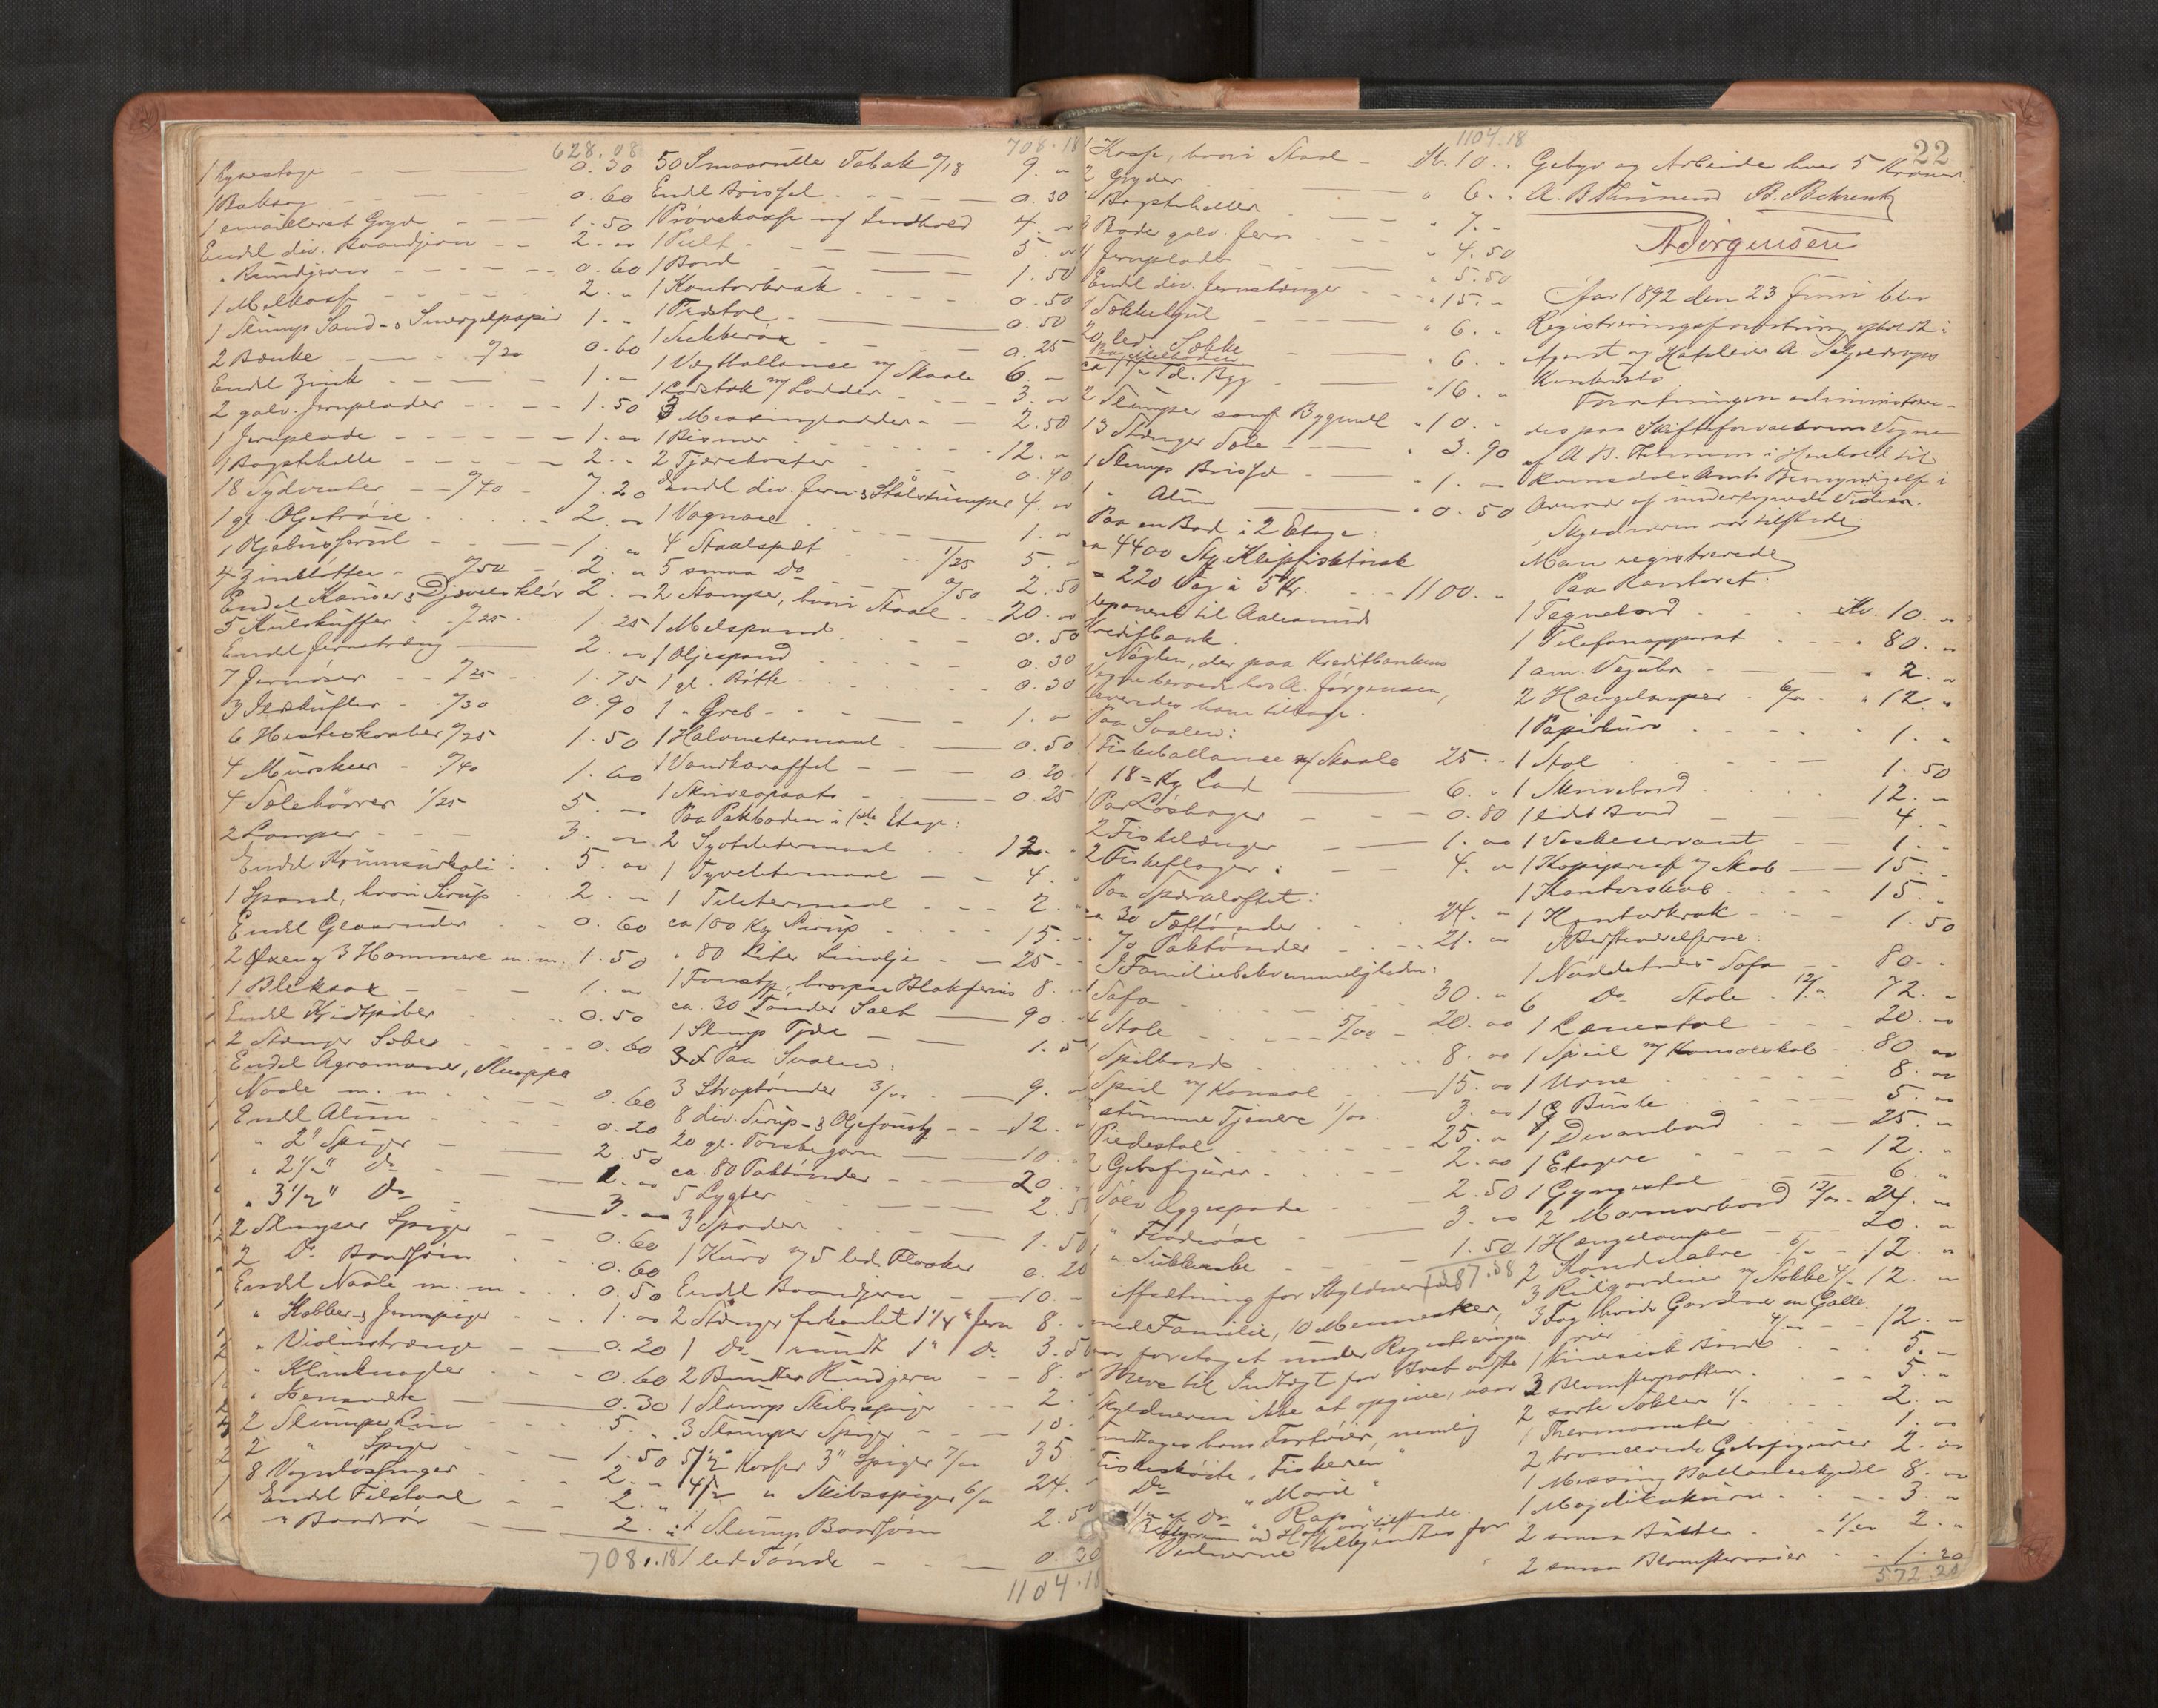 628.08
1 Lysestage 0.30
1 Baksag 0.60
1 emailleret Gryde 1.50
Endel div. Baandjern 2. "
" Rundjern 0.60
1 Melkasse 2. "
1 Slump Sand- & Smergelpapir 1. "
2 Bænke 0.60
Endel Zink 1. "
2 galv. Jernplader 1.50
1 Jernplade 1. "
1 Bagstehelle 2. "
18 Sydvester 0/40 7.20
1 gl. Oljetrøie 2. "
1 1. "
4 Zinkbøtter 0/50 2. "
Endel Kanoer & Djævelsklør 2. "
5 Kulskuffer 0/25 1.25
Endel Jerntraad 2. "
7 Jernøser 0/25 1.75
3 Ildskufler 0/30 0.90
6 Hesteskraber 0/25 1.50
4 Murskeer 0/40 1.60
4 Solebøorer 1/25 5. "
2 Lamper 3. "
Endel 5. "
1 Spand, hvori Sirup 2. "
Endel Glasruder 0.60
2 Øxer og 3 Hammere m.m. 1.50
1 Bliksax 1. "
Endel Kridtpiber 0.50
2 Stænger Sæbe 0.60
Endel Agramaner, Knappe
Naale m. m. 0.60
Endel Alun 0.20
" 2" Spiger 2.50
" 2½" Do 1. "
" 3½" Do 3. "
2 Slumper Spiger 0.60
2 Do Baadsøm 0.60
Endel Naale m. m. 0.50
" Kobber- & Jernspiger 1. "
" Violinstrænge 0.20
" 0.60
" 0.30
2 Slumper Lim 5. "
2 " Spiger 1.50
8 Vognbøsninger 2. "
Endel Filstaal 2. "
" Baadror 2. "
708.18
708.18
50 Smaaruller Tobak 0/18 9. "
Endel Brissel 0.30
1 Prøvekasse m/ Indhold 4. "
1 Pult 5. "
1 Bord 1.50
1 Kontorkrak 0.50
1 Træstol 0.50
1 Sukkersax 0.25
1 Vægtballance m/ Skaale 6. "
1 Lodstok m/ Lodder 3. "
3 Messinglodder 2.50
1 Bismer 12. "
2 Tjærekoster 0.40
Endel div. Jern- & Stålstumper 4. "
1 Vognaxe 1. "
4 Staalspet 1/25 5. "
5 smaa Do 0/50 2.50
2 Stamper, hvori Staal 20. "
1 Melspand 0.50
1 Oljespand 0.30
1 gl. Bøtte 0.30
1 " Greb 1. "
1 Halvmetermaal 0.50
1 Vandkaraffel 0.20
1 Skriveopsats 0.25
Paa Pakboden i 1ste Etage:
2 Syvlitermaal 12. "
1 Tyvelitermaal 4. "
1 Tilitermaal 2. "
ca 150 Kg Sirup 15. "
" 80 Liter Linolje 25. "
1 Foustg, hvorpaa Blakfernis 8. "
ca. 30 Tønder Salt 90. "
1 Slump Tjære 1.5
Paa Svalen:
3 Straptønder 3/00 9. "
8 div. Sirup- & Oljefoustg 12. "
20 gl. Torskegarn 10. "
ca. 80 Paktønder 20. "
5 Lygter 2.5
3 Spader 1.50
1 Kurv m/ 5 led. Flasker 0.20
Endel Baandjern 10. "
2 Stænger firkantet 1¼" Jern 8. "
1 Do rundt 1" Do 3.50
2 Bundter Rundjern 8. "
1 Slump Skibsspiger 2. "
3 Slumper Spiger 10. "
5½ Kasser 3" Spiger 7/00 35
4½ " Skibsspiger 6/00 24. "
1 Slump Baadsøm 2.50
1 led. Tønde 0.30
1104.18
1104.18
1 Kasse, hvori Staal Kr. 10. "
2 Gryder " 6. "
2 Bagstehelles " 7. "
3 Bader galv. Jern " 4.50
4 Jernplader " 5.50
Endel div. Jernstænger " 15. "
1 Sækkehjul " 6. "
20 led. Sække " 6. "
Paa Melboden
ca 1½ Td. Byg " 16. "
2 Slumper samf. Bygmel " 10. "
13 Stænger Sole " 3.90
1 Slump Brissel " 1. "
1 " Alun " 0.50
Paa en Bod i 2 Etage:
ca 4400 Stk Klipfisktrisk
= 220 Vog à 5 Kr. 1100. "
deponeret til Aalesunds
Kreditbank.
Nøglen, der paa Kreditbankens
Vegne beroede hos A. Jørgensen,
leveredes ham tilbage.
Paa Svalen:
1 Fiskeballance m/ Skaale 25. "
1 18 = Kg Lod 6. "
1 Par Løsbager 0.80
2 Fiskelænger 1. "
2 Fiskeflager 4. "
Paa Spærreloftet:
ca 30 Tættønder 24. "
70 Paktønder 21. "
I Familiebekvemmeligheden:
1 Sofa 30. "
4 Stole 5/00 20. "
1 Spilbord 8. "
1 Speil m/ Konsol 15. "
3 stumme Tjenere 1/00 3. "
1 Piedestal 25. "
2 Gibsfigurer 2. "
1 Sølv Æggespade 2.50
1 " Flødeske 3. "
1 " Sukkerske 1.50
1387.38
Afsætning for Skyldneren
med Familie, 10 Mennesker,
var foretaget under Registreringen.
Mere til Indtægt for Boet vidste
Skyldneren ikke at opgive, naar
undtages hans Fartøier, nemlig
Fiskeskøite " Fiskeren "
Do " Marie "
1/2 af Do " Rap "
Vidnerne tilkjendtes for
22
Gebyr og Arbeide hver 5 Kroner.
A. B. Thunem B. Behrentz
A Jørgensen
Aar 1892 den 23 Juni blev
Registreringsforretning afholdt i
Agent og Hoteleier A. Schjelderups
Konkursbo.
Forretningen administrere-
des paa Skifteforvalterens Vegne
af A. B. Thunem i Henhold til
Romsdals Amts Bemyndigelse i
Overvær af undertegnede Vidner.
Skyldneren var tilstede.
Man registrerede
Paa Kontoret:
1 Tegnebord Kr. 10. "
1 Telefonapparat " 80. "
1 am. Væguhr " 2. "
2 Hængelamper 6/00 " 12. "
1 Papirkurv 1. "
1 Stol 1.50
1 Skrivebord 12. "
1 lidet Bord 4. "
1 Vaskeservant 1. "
1 Kopipresse m/ Skab 15. "
1 Kontorskab 15. "
1 Kontorkrak 1.50
1 Nøddetræes Sofa 80. "
6 Do Stole 12/00 72. "
1 Lænestol 20. "
1 Speil m/ Konsolskab 80. "
1 Urne 8. "
1 G Büste 5. "
1 Divanbord 25. "
1 Etagere 12. "
1 Gyngestol 6. "
2 Marmorbord 12/00 24. "
1 Hængelampe 20. "
2 Kandelabre 6/00 12. "
3 Rulgardiner m/ Stokke 4/00 12. "
3 Fag hvide Gardiner m Galle-
rier 4/00 12. "
1 kinesisk Bord 5. "
2 Blomsterpotter 5. "
2 sorte Søiler 1/00 2. "
1 Thermometer 1. "
2 broncerede Gibsfigurer 2. "
1 Messing Ballancekjedel 8. "
1 Majolikakurv 3. "
2 smaa Büster 1/00 2. "
2 smaa Blomstervaser 1.20
572.20